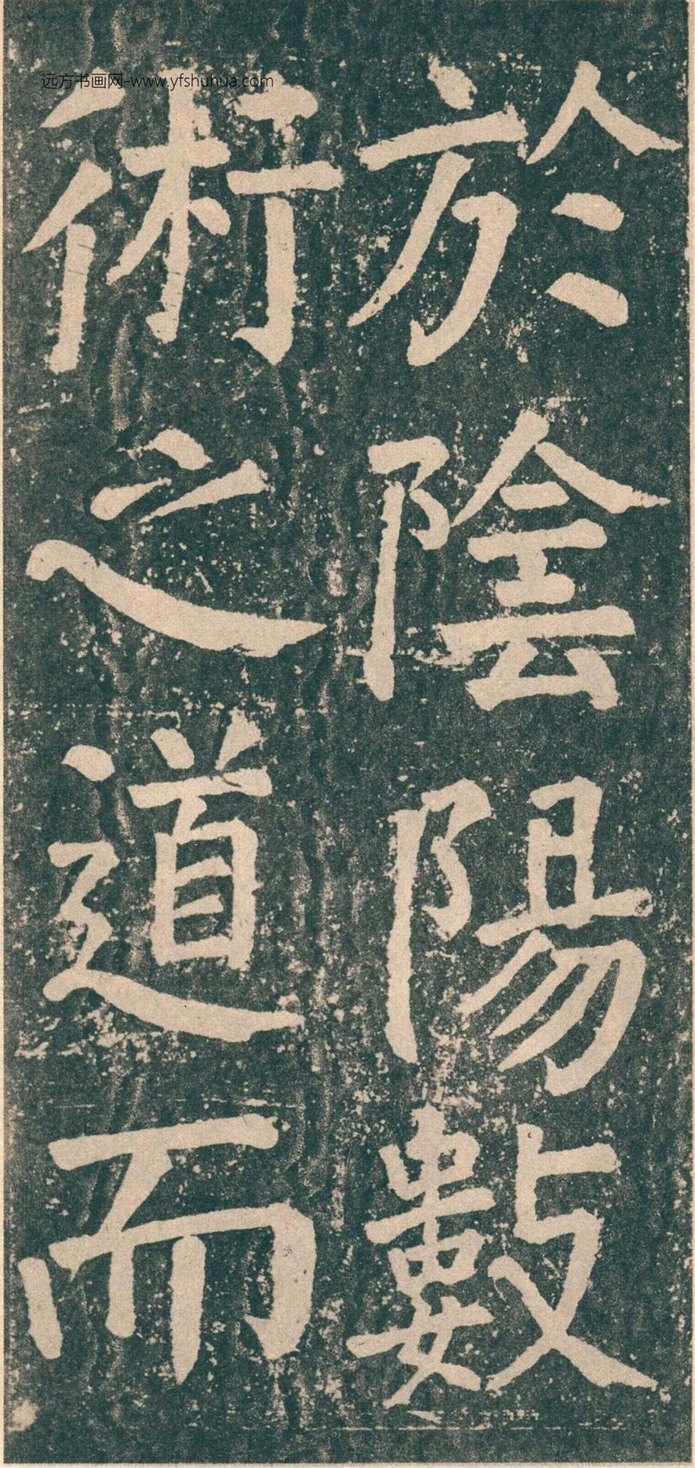 於陰陽數
術之道而
远方书画网-www.yfshuhua.com